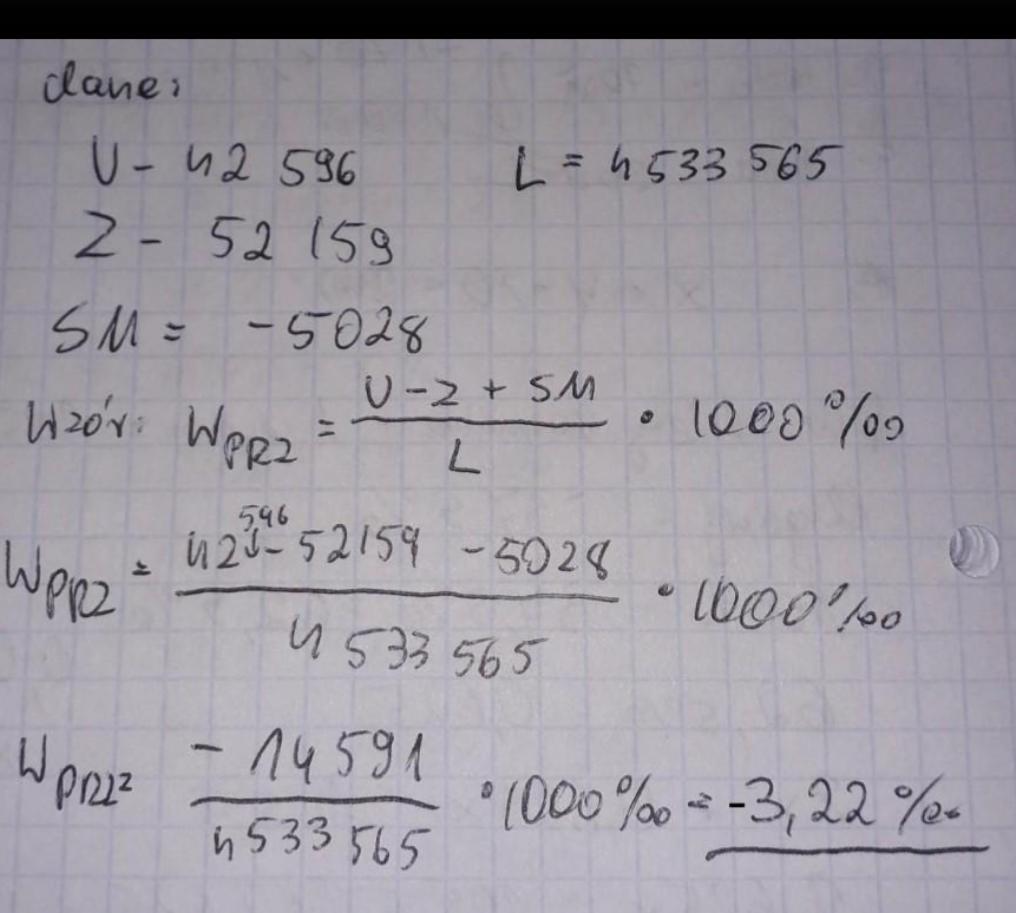 dane:
U - 42 596 L = 4533 565
Z - 52 159
SM = -5028
Wzór: W_PRZ = (U - Z + SM) / L · 1000 ‰
W_PRZ = (42 596 - 52159 - 5028) / 4 533 565 · 1000 ‰
W_PRZ = -14 591 / 4533 565 · 1000 ‰ = -3,22 ‰